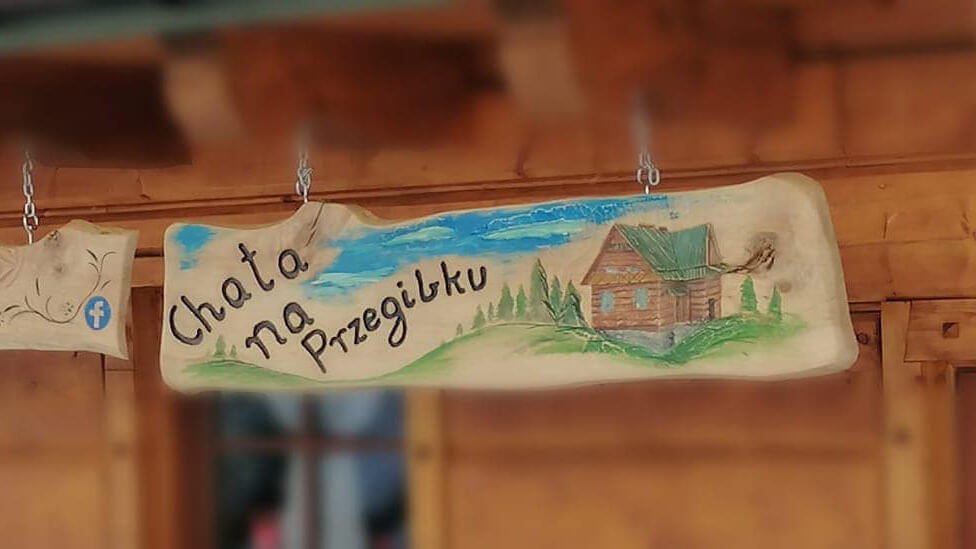 Chata
na
Przegibku